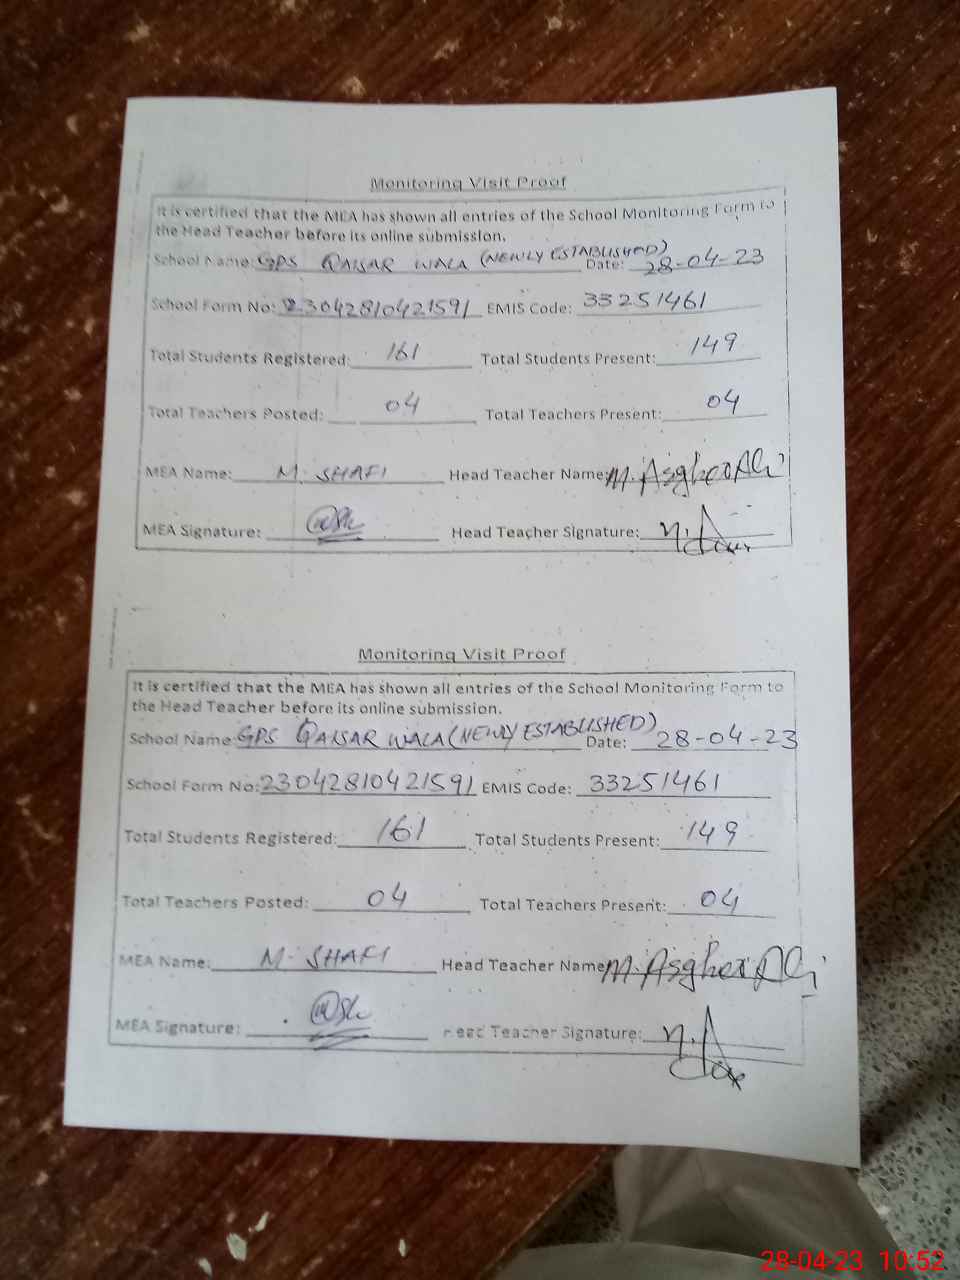 Monitoring Visit Proof
It is certified that the MEA has shown all entries of the School Monitoring Form to
the Head Teacher before its online submission.
School Name: GPS QAISAR WALA (NEWLY ESTABLISHED) Date: 28-04-23
School Form No: 23042810421591 EMIS Code: 33251461
Total Students Registered: 161 Total Students Present: 149
Total Teachers Posted: 04 Total Teachers Present: 04
MEA Name: M. SHAFI Head Teacher Name: M. Asgher Ali
MEA Signature: Head Teacher Signature:
Monitoring Visit Proof
It is certified that the MEA has shown all entries of the School Monitoring Form to
the Head Teacher before its online submission.
School Name: GPS QAISAR WALA (NEWLY ESTABLISHED) Date: 28-04-23
School Form No: 23042810421591 EMIS Code: 33251461
Total Students Registered: 161 Total Students Present: 149
Total Teachers Posted: 04 Total Teachers Present: 04
MEA Name: M. SHAFI Head Teacher Name: M. Asgher Ali
MEA Signature: Head Teacher Signature:
28-04-23 10:52